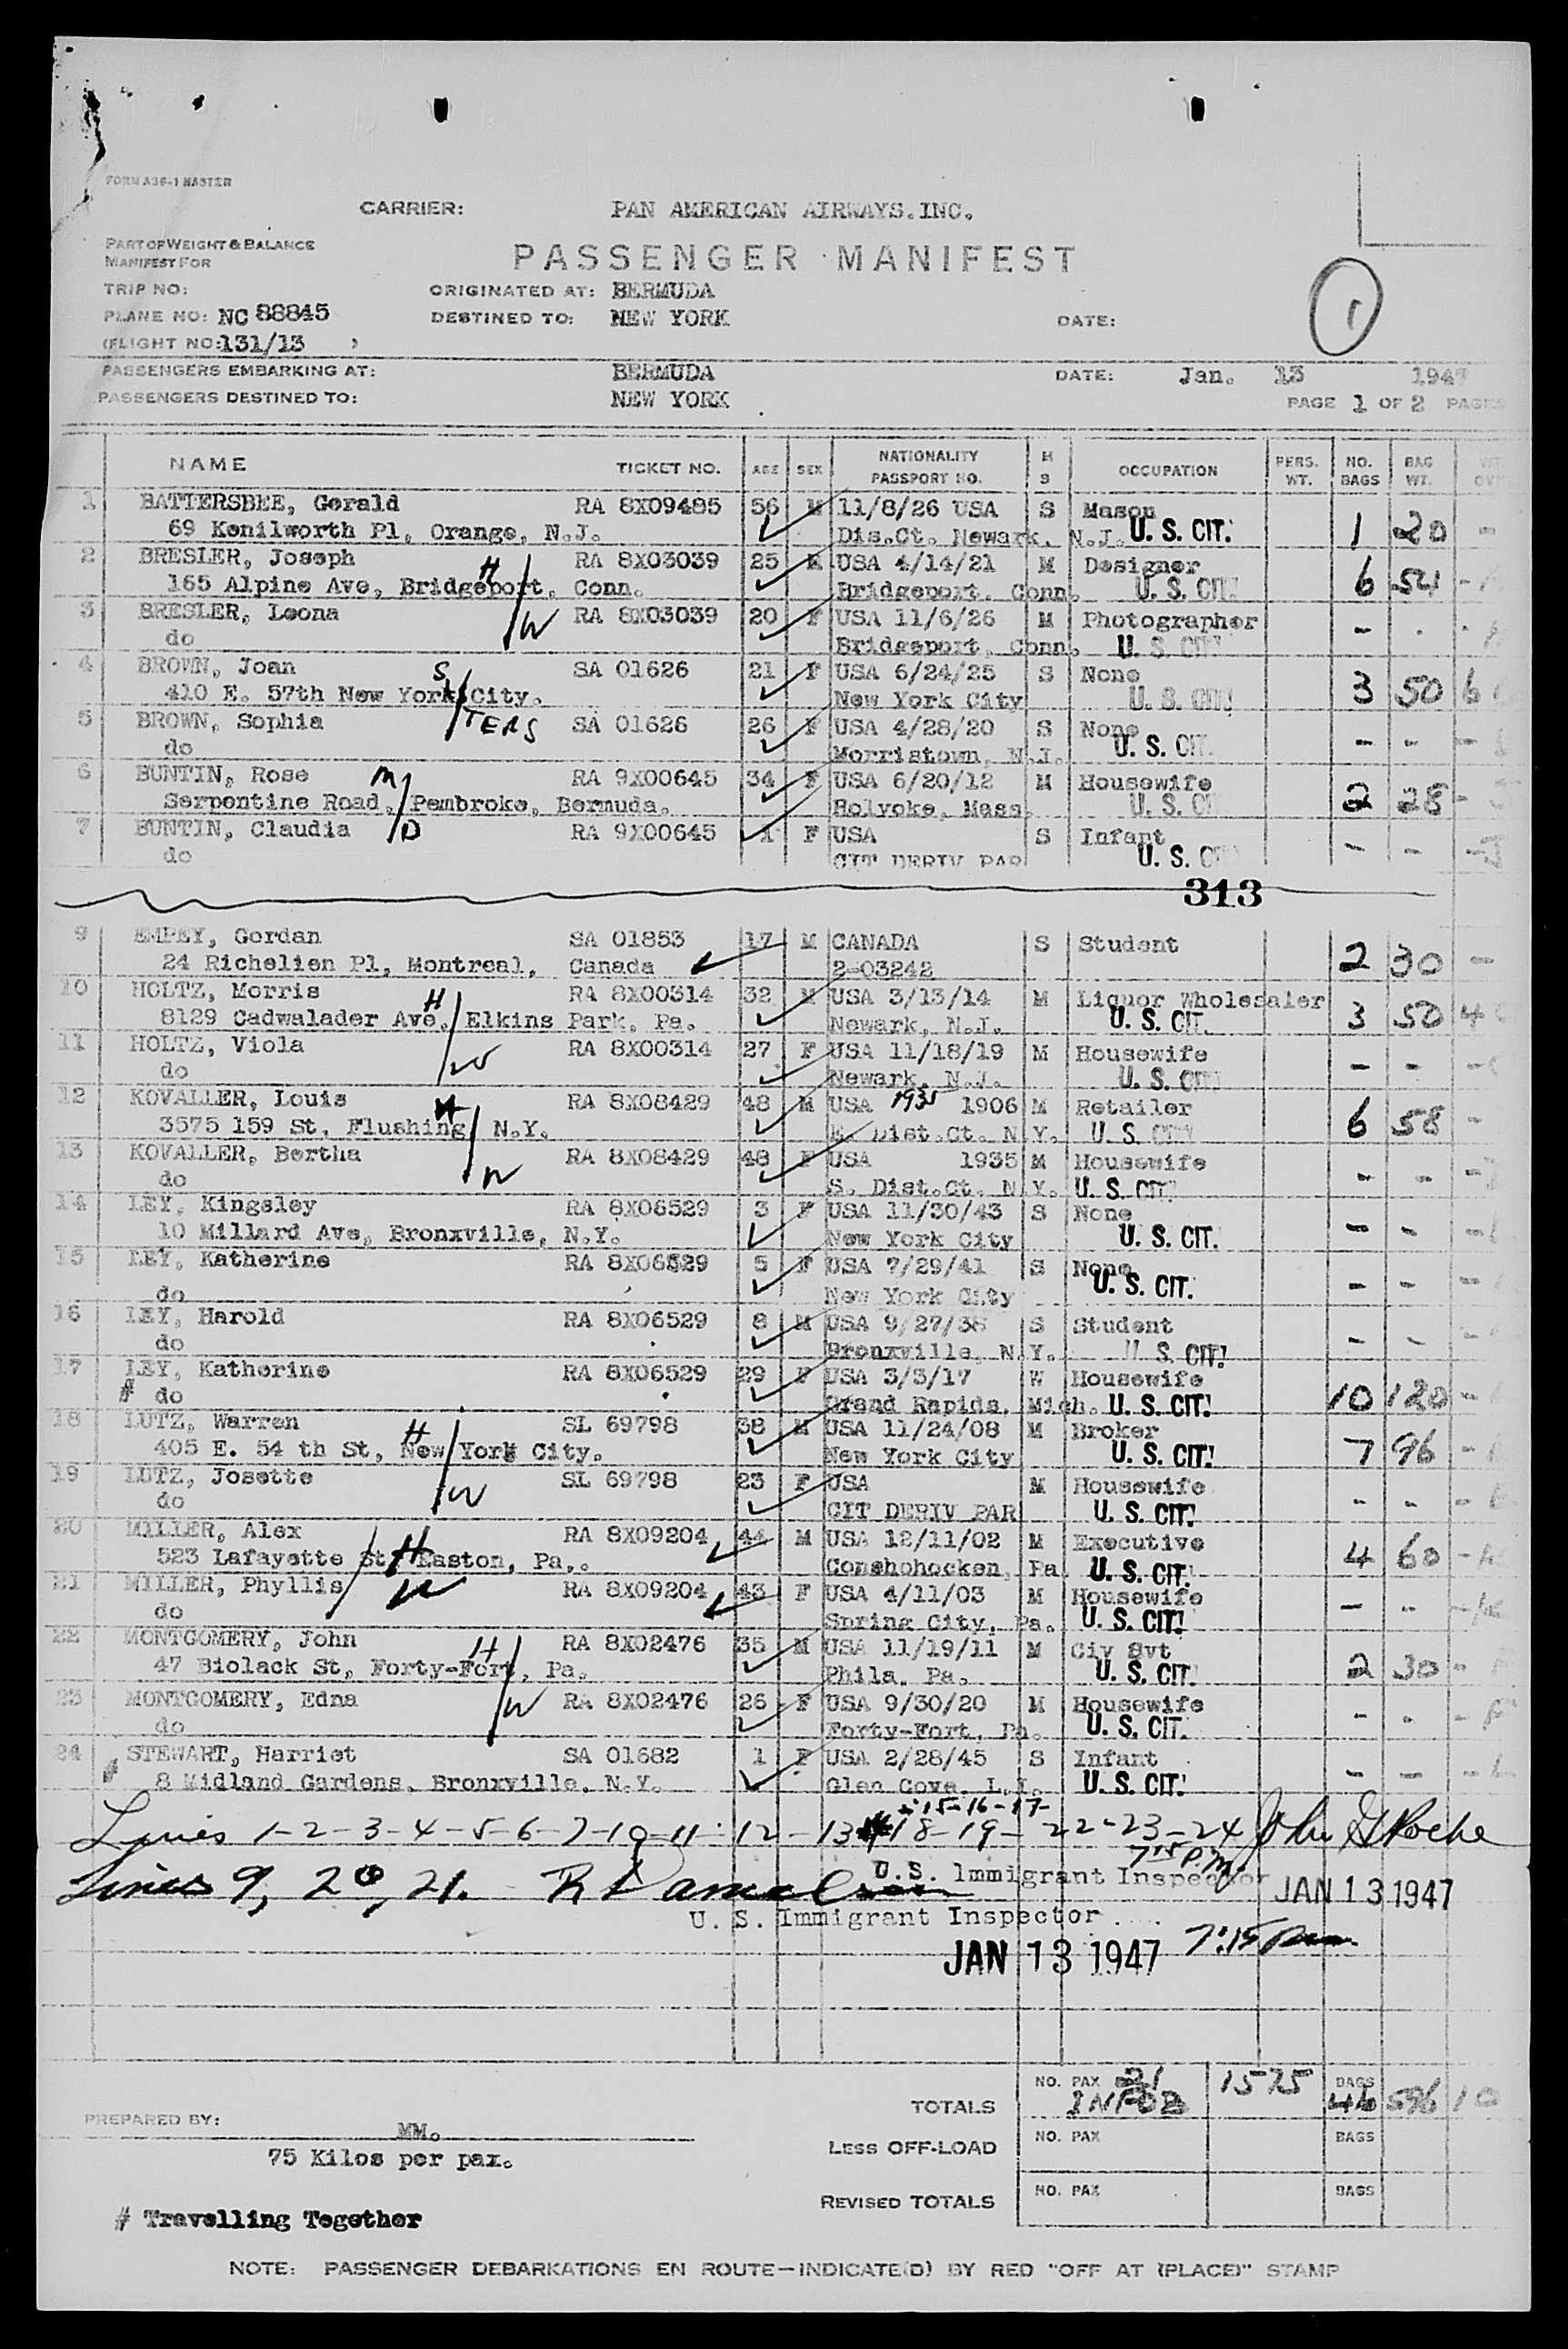 FORM A36-1 MASTER
CARRIER: PAN AMERICAN AIRWAYS.INC.
PART OF WEIGHT & BALANCE
MANIFEST FOR
PASSENGER MANIFEST
TRIP NO: ORIGINATED AT: BERMUDA
PLANE NO: NC 88845 DESTINED TO: NEW YORK DATE: 1
(FLIGHT NO: 131/13 )
PASSENGERS EMBARKING AT: BERMUDA DATE: Jan. 13 1947
PASSENGERS DESTINED TO: NEW YORK
PAGE 1 OF 2 PAGES
NAME TICKET NO. AGE SEX NATIONALITY PASSPORT NO. M S OCCUPATION PERS. WT. NO. BAGS BAG WT. WT.
1 BATTERSBEE, Gerald RA 8X09485 56 M 11/8/26 USA S Mason
69 Kenilworth Pl, Orange, N.J. Dis.Ct. Newark, N.J. U. S. CIT. 1 20 -
2 BRESLER, Joseph H RA 8X03039 25 M USA 4/14/21 M Designer
165 Alpine Ave, Bridgeport, Conn. Bridgeport, Conn. U. S. CIT. 6 54 -
3 BRESLER, Leona W RA 8X03039 20 F USA 11/6/26 M Photographer
do Bridgeport, Conn. U. S. CIT. - - -
4 BROWN, Joan SA 01626 21 F USA 6/24/25 S None
410 E. 57th New York City. New York City U. S. CIT. 3 50 6
5 BROWN, Sophia SISTERS SA 01626 26 F USA 4/28/20 S None
do Morristown, N.J. U. S. CIT. - - -
6 BUNTIN, Rose M RA 9X00645 34 F USA 6/20/12 M Housewife
Serpentine Road, Pembroke, Bermuda. Holyoke, Mass. U. S. CIT. 2 28 -
7 BUNTIN, Claudia D RA 9X00645 1 F USA S Infant
do CIT DERIV PAR U. S. CIT. - - -
313
9 EMPEY, Gordan SA 01853 17 M CANADA S Student
24 Richelien Pl, Montreal, Canada 2-03242 2 30 -
10 HOLTZ, Morris H RA 8X00314 32 M USA 3/13/14 M Liquor Wholesaler
8129 Cadwalader Ave, Elkins Park, Pa. Newark, N.J. U. S. CIT. 3 50 4
11 HOLTZ, Viola W RA 8X00314 27 F USA 11/18/19 M Housewife
do Newark, N.J. U. S. CIT. - - -
12 KOVALLER, Louis H RA 8X08429 48 M USA 1935 1906 M Retailer
3575 159 St, Flushing, N.Y. E. Dist.Ct. N.Y. U. S. CIT. 6 58 -
13 KOVALLER, Bertha W RA 8X08429 48 F USA 1935 M Housewife
do S. Dist.Ct. N.Y. U. S. CIT. - - -
14 LEY, Kingsley RA 8X06529 3 F USA 11/30/43 S None
10 Millard Ave, Bronxville, N.Y. New York City U. S. CIT. - - -
15 LEY, Katherine RA 8X06529 5 F USA 7/29/41 S None
do New York City U. S. CIT. - - -
16 LEY, Harold RA 8X06529 8 M USA 9/27/38 S Student
do Bronxville, N.Y. U. S. CIT. - - -
17 LEY, Katherine RA 8X06529 29 F USA 3/3/17 W Housewife
# do Grand Rapids, Mich. U. S. CIT. 10 120 -
18 LUTZ, Warren H SL 69798 38 M USA 11/24/08 M Broker
405 E. 54 th St, New York City. New York City U. S. CIT. 7 96 -
19 LUTZ, Josette W SL 69798 23 F USA M Housewife
do CIT DERIV PAR U. S. CIT. - - -
20 MILLER, Alex H RA 8X09204 44 M USA 12/11/02 M Executive
523 Lafayette St, Easton, Pa,. Conshohocken, Pa. U. S. CIT. 4 60 -
21 MILLER, Phyllis W RA 8X09204 43 F USA 4/11/03 M Housewife
do Spring City, Pa. U. S. CIT. - - -
22 MONTGOMERY, John H RA 8X02476 35 M USA 11/19/11 M Civ Svt
47 Biolack St, Forty-Fort, Pa. Phila, Pa. U. S. CIT. 2 30 -
23 MONTGOMERY, Edna W RA 8X02476 26 F USA 9/30/20 M Housewife
do Forty-Fort, Pa. U. S. CIT. - - -
24 STEWART, Harriet SA 01682 1 F USA 2/28/45 S Infant
# 8 Midland Gardens, Bronxville, N.Y. Glen Cove, L.I. U. S. CIT. - - -
15-16-17-
Lines 1-2-3-4-5-6-7-10-11-12-13-18-19-22-23-24 John G Roche
7:15 P.M.
U.S. Immigrant Inspector JAN 13 1947
Lines 9, 20, 21. R Danielson
U. S. Immigrant Inspector
JAN 13 1947 7:15 pm
TOTALS NO. PAX 21 INF 02 1575 BAGS 46 596 10
PREPARED BY: MM.
LESS OFF-LOAD NO. PAX BAGS
75 Kilos per pax.
REVISED TOTALS NO. PAX BAGS
# Travelling Together
NOTE: PASSENGER DEBARKATIONS EN ROUTE—INDICATE(D) BY RED "OFF AT (PLACE)" STAMP